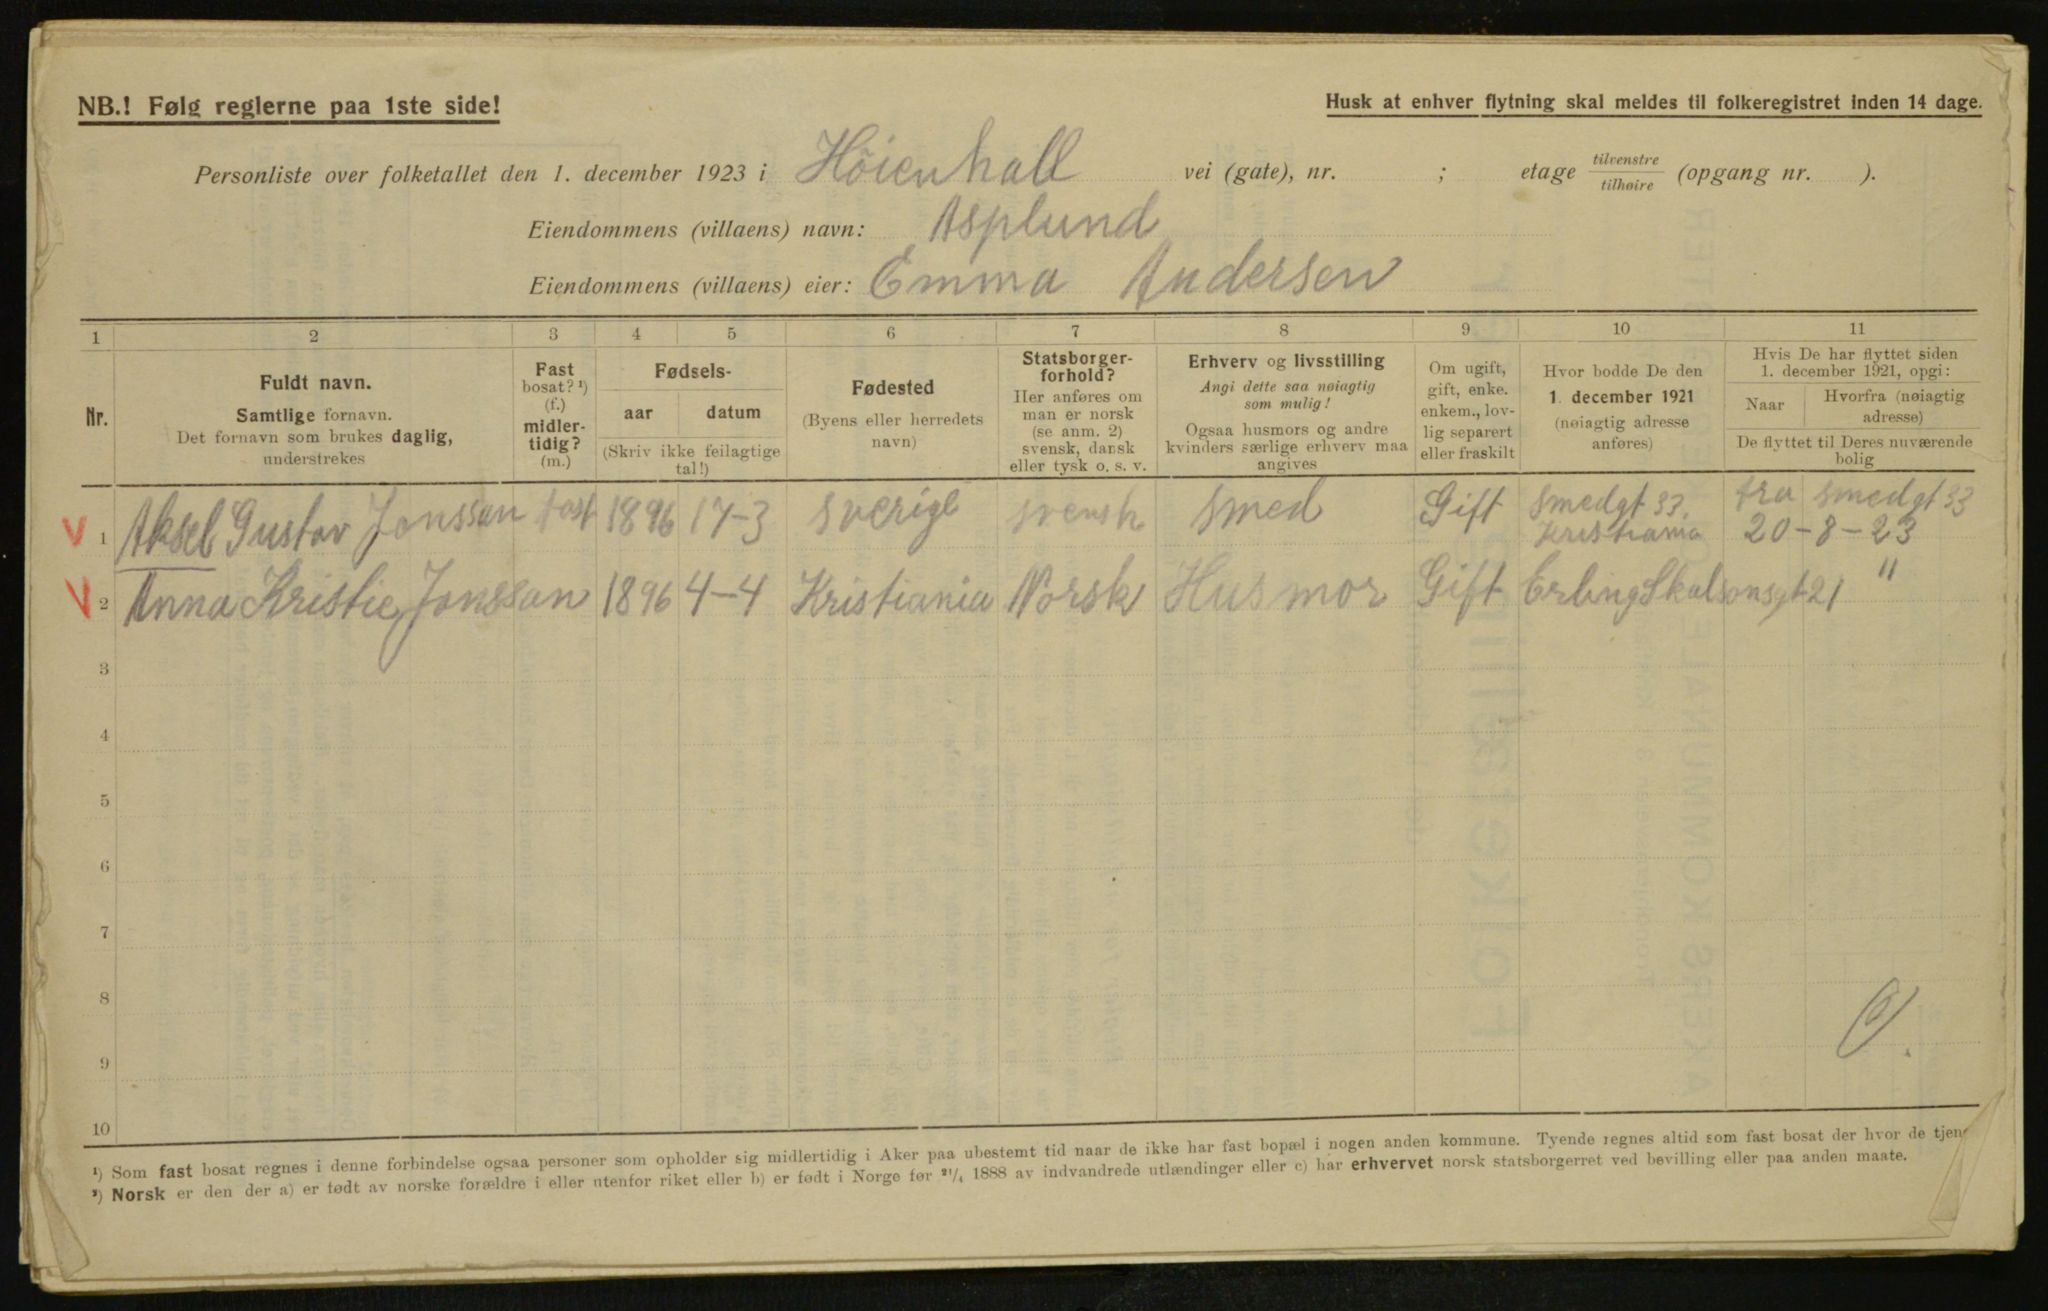 NB.! Følg reglerne paa 1ste side!
Husk at enhver flytning skal meldes til folkeregistret inden 14 dage.
Personliste over folketallet den 1. december 1923 i Höienhall vei (gate), nr. ; etage tilvenstre tilhøire (opgang nr. ).
Eiendommens (villaens) navn: Asplund
Eiendommens (villaens) eier: Emma Andersen
1 2 3 4 5 6 7 8 9 10 11
Nr.
Fuldt navn.
Samtlige fornavn.
Det fornavn som brukes daglig,
understrekes
Fast
bosat? ¹)
(f.)
midler-
tidig?
(m.)
Fødsels-
aar datum
(Skriv ikke feilagtige
tal!)
Fødested
(Byens eller herredets
navn)
Statsborger-
forhold?
Her anføres om
man er norsk
(se anm. 2)
svensk, dansk
eller tysk o. s. v.
Erhverv og livsstilling
Angi dette saa nøiagtig
som mulig!
Ogsaa husmors og andre
kvinders særlige erhverv maa
angives
Om ugift,
gift, enke.
enkem., lov-
lig separert
eller fraskilt
Hvor bodde De den
1. december 1921
(nøiagtig adresse
anføres)
Hvis De har flyttet siden
1. december 1921, opgi:
Naar
Hvorfra (nøiagtig
adresse)
De flyttet til Deres nuværende
bolig
1 Aksel Gustav Jonssan fast 1896 17-3 Sverige svensk smed Gift Smedgt 33. Kristiania fra Smedgt 33 20-8-23
2 Anna Kristie Jonssan 1896 4-4 Kristiania Norsk Husmor Gift Erling Skalsonsgt 21 "
3
4
5
6
7
8
9
10
¹) Som fast bosat regnes i denne forbindelse ogsaa personer som opholder sig midlertidig i Aker paa ubestemt tid naar de ikke har fast bopæl i nogen anden kommune. Tyende regnes altid som fast bosat der hvor de tjene
²) Norsk er den der a) er født av norske forældre i eller utenfor riket eller b) er født i Norge før ²¹/₄ 1888 av indvandrede utlændinger eller c) har erhvervet norsk statsborgerret ved bevilling eller paa anden maate.